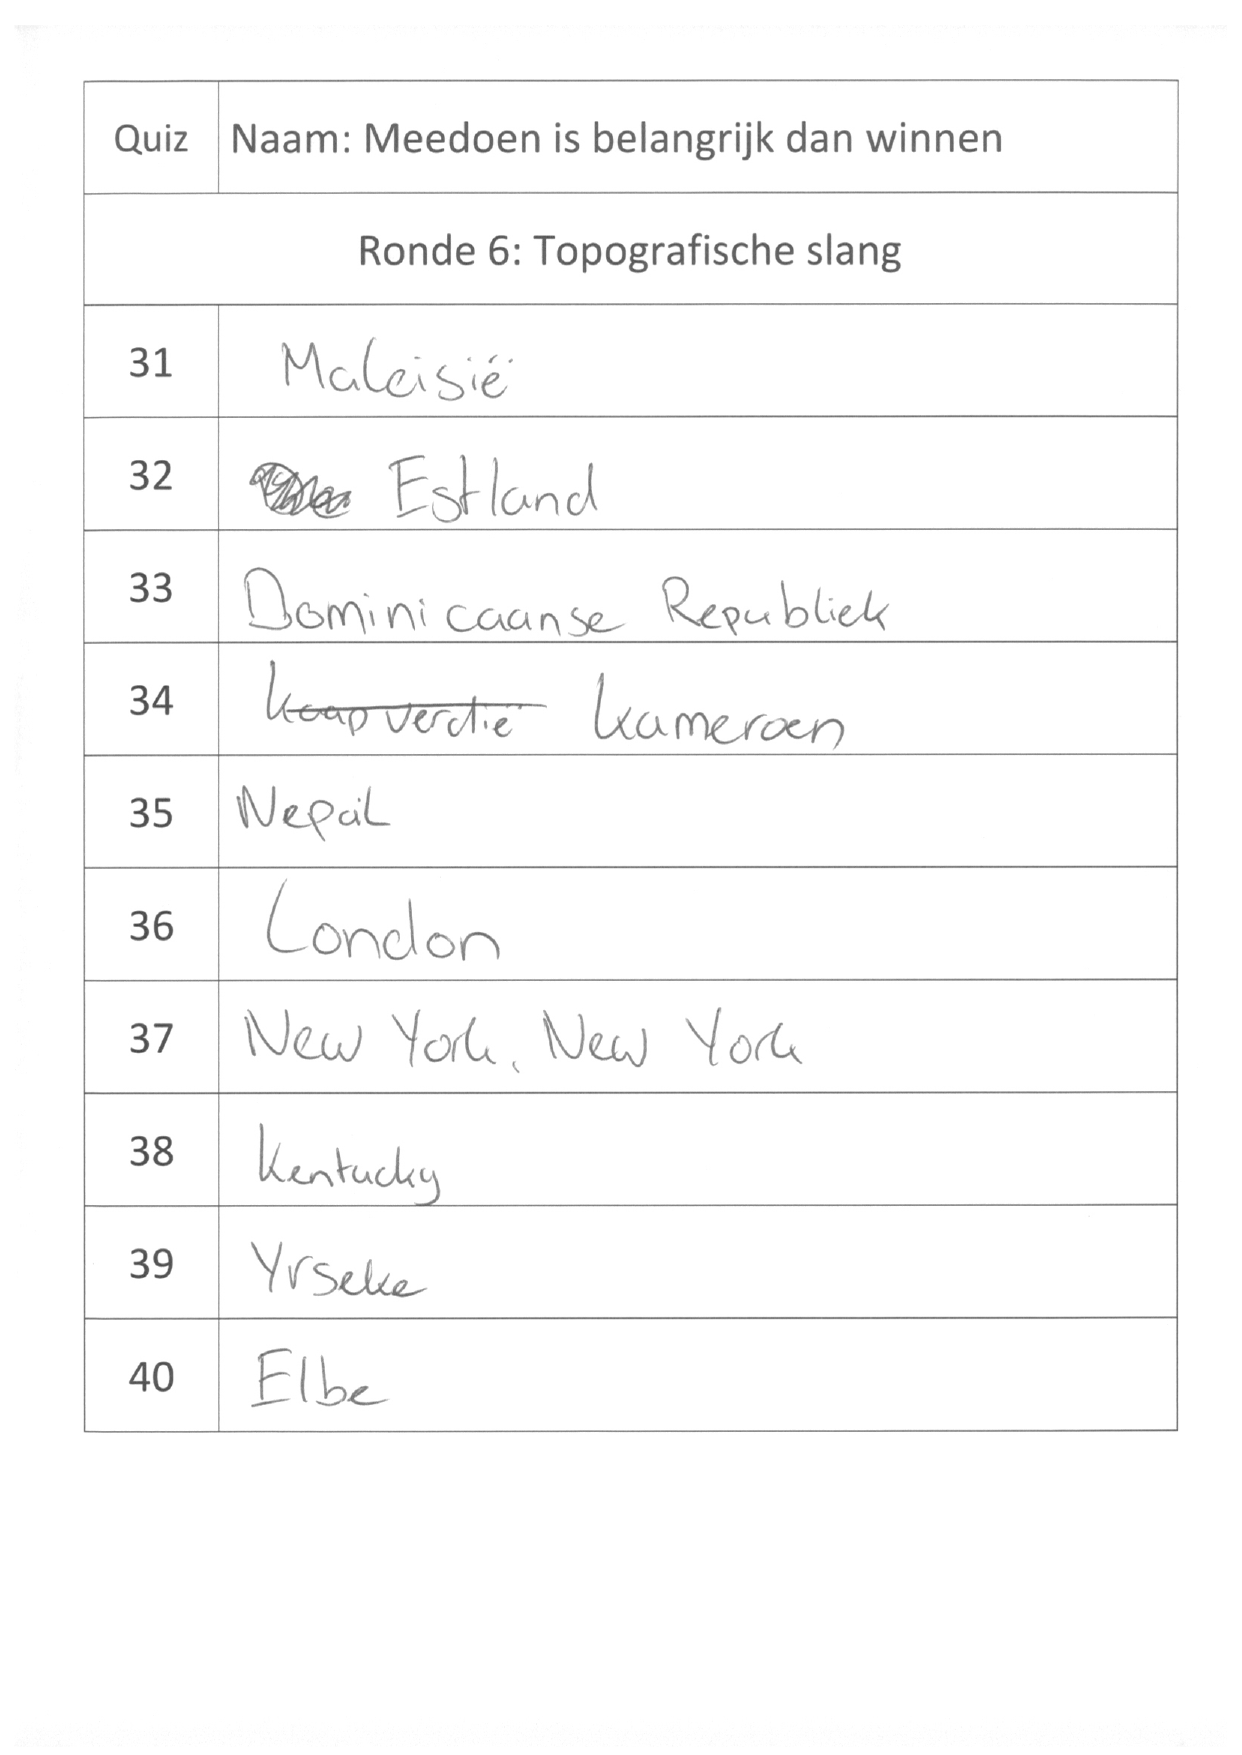 Quiz Naam: Meedoen is belangrijk dan winnen
Ronde 6: Topografische slang
31 Maleisië
32 Estland
33 Dominicaanse Republiek
34 Kaapverdië Kameroen
35 Nepal
36 London
37 New York, New York
38 Kentucky
39 Yrseke
40 Elbe